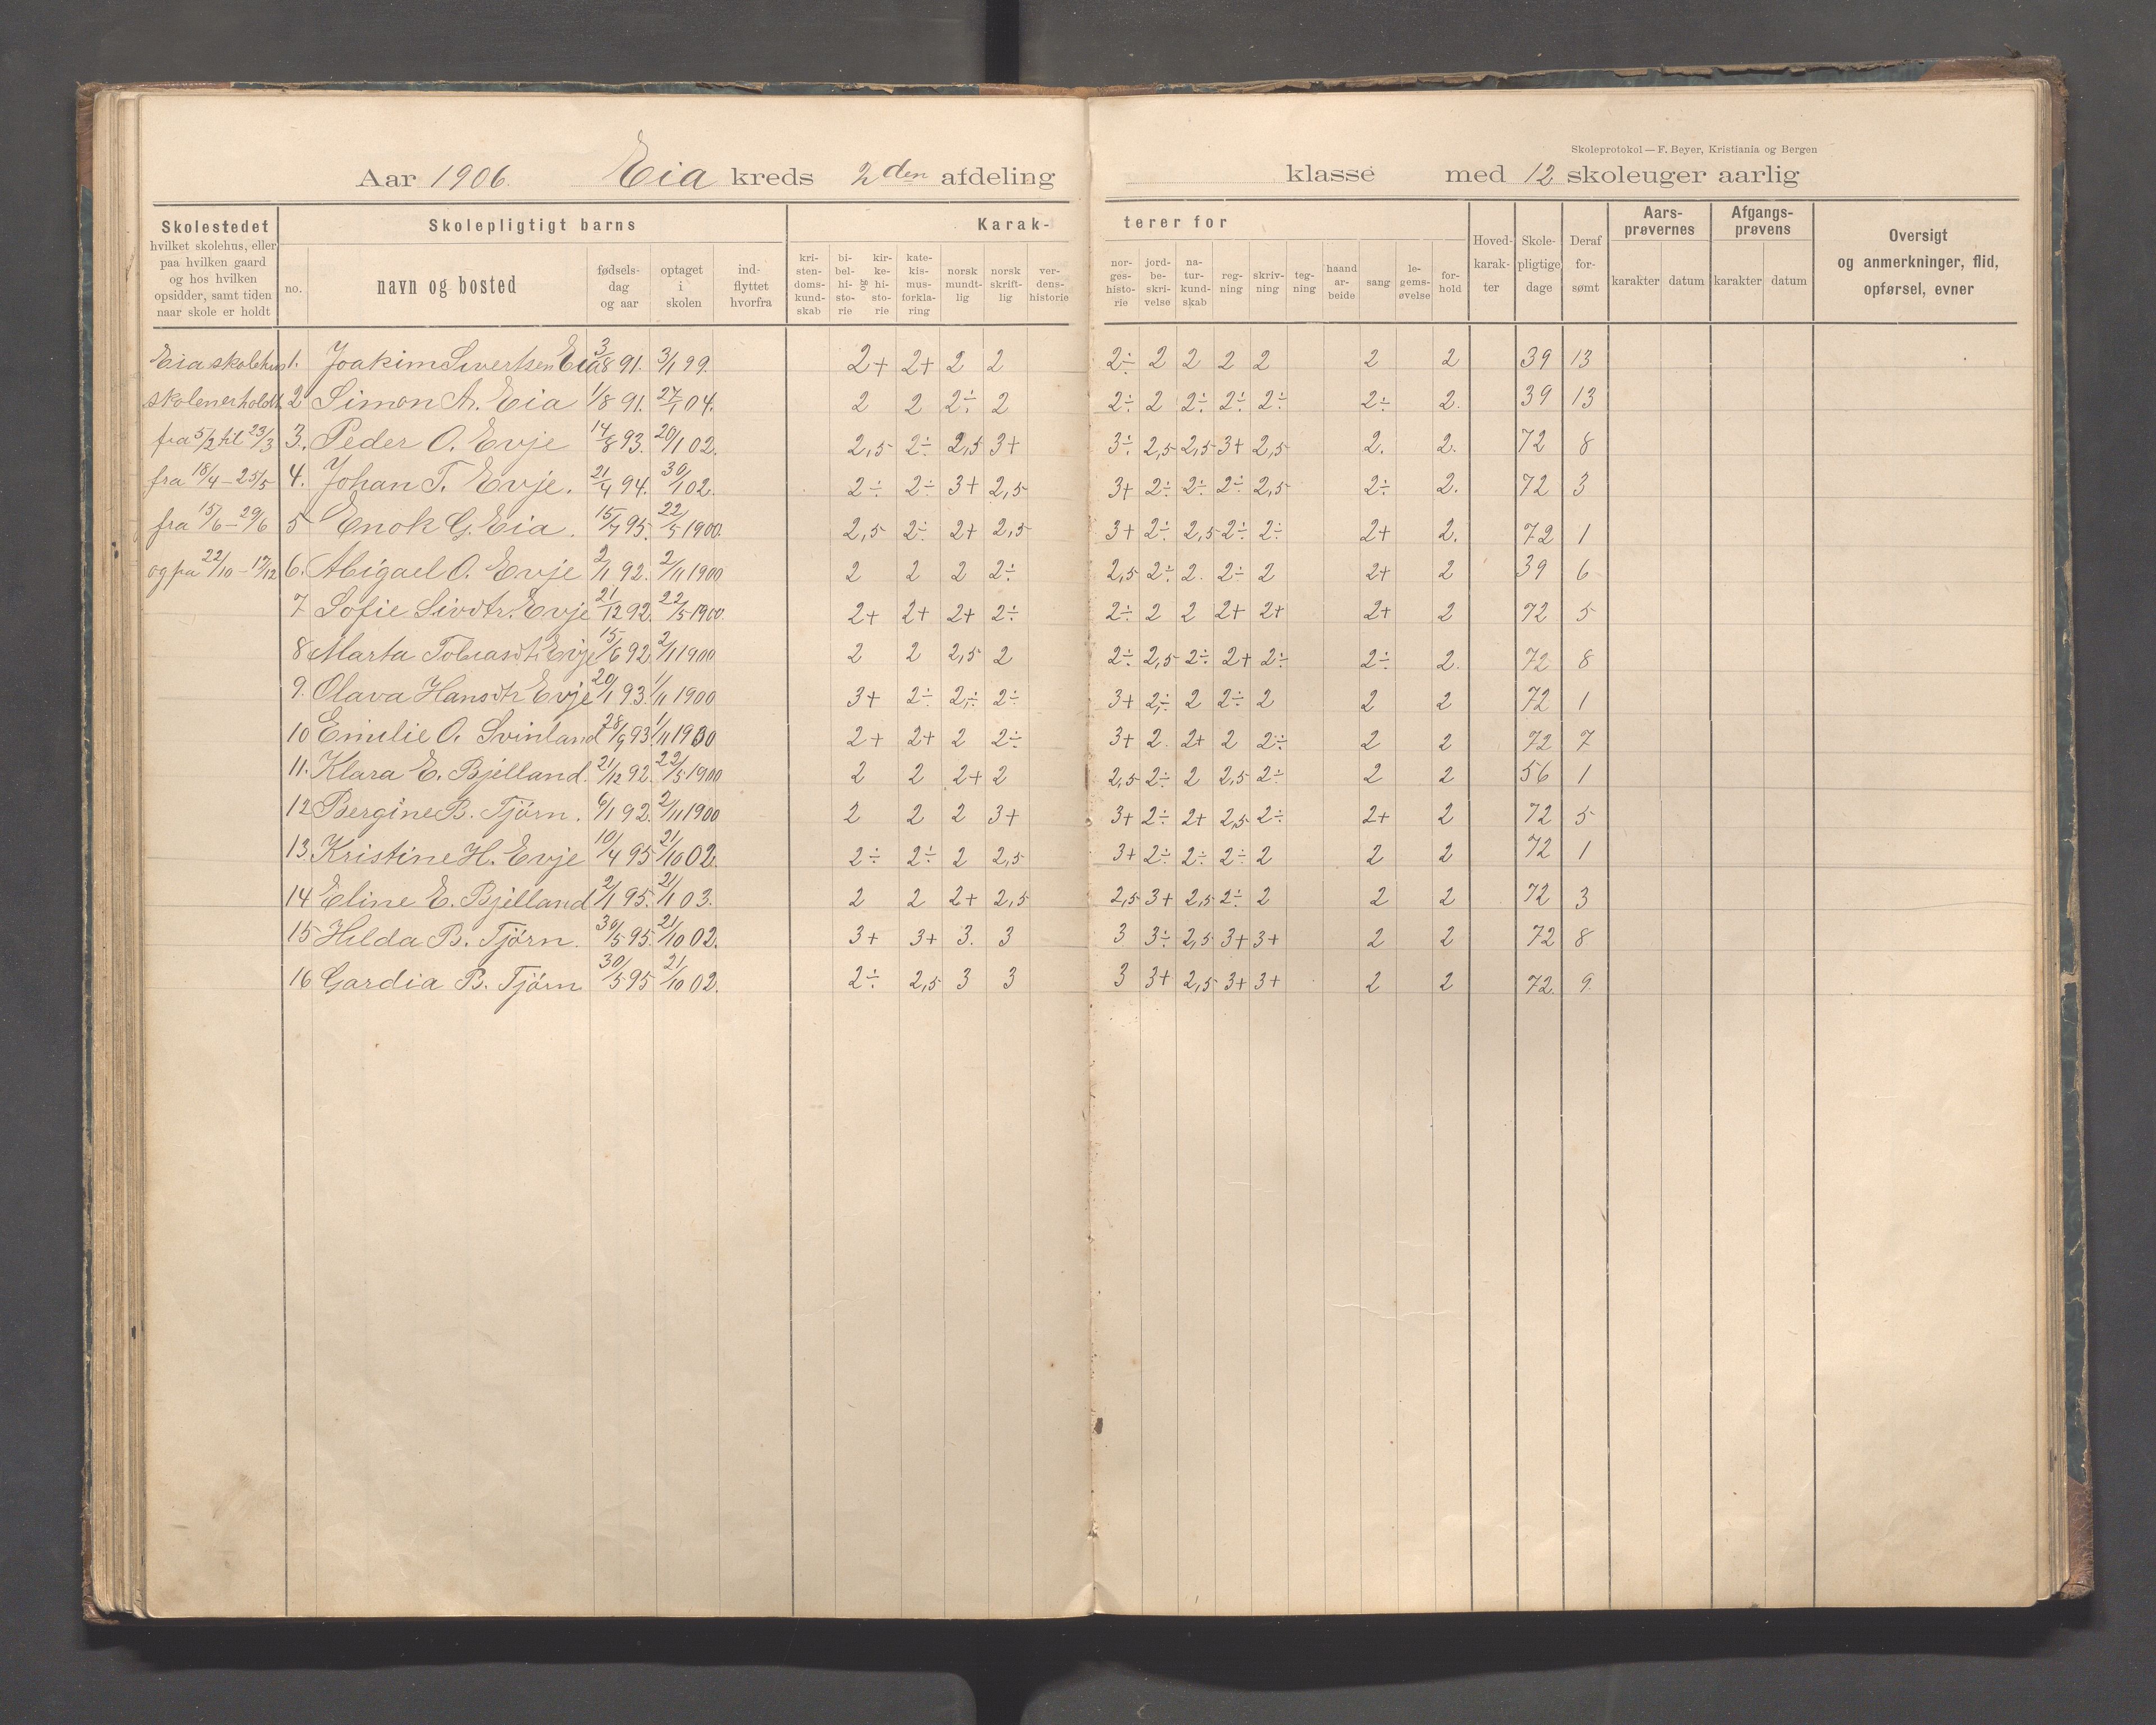 Skoleprotokol — F. Beyer, Kristiania og Bergen
Aar 1906. Eia kreds 2den afdeling klasse med 12 skoleuger aarlig
Skolestedet
hvilket skolehus, eller paa hvilken gaard og hos hvilken opsidder, samt tiden naar skole er holdt
Skolepligtigt barns
no. navn og bosted fødselsdag og aar optaget i skolen indflyttet hvorfra
Karakterer for
kristendomskundskab bibelhistorie og kirkehistorie katekismusforklaring norsk mundtlig norsk skriftlig verdenshistorie norgeshistorie jordbeskrivelse naturkundskab regning skrivning tegning haandarbeide sang legemsøvelse forhold
Hovedkarakter Skolepligtige dage Deraf forsømt
Aarsprøvernes karakter datum
Afgangsprøvens karakter datum
Oversigt og anmerkninger, flid, opførsel, evner
Eia skolehus 1. Joakim Sivertsen Eia 3/8 91. 3/1 99. 2+ 2+ 2 2 2÷ 2 2 2 2 2 2 39 13
skolen er holdt 2 Simon A. Eia 1/8 91. 27/1 04. 2 2 2÷ 2 2÷ 2 2÷ 2÷ 2÷ 2÷ 2. 39 13
fra 5/2 til 23/3 3. Peder O. Evje 14/8 93. 20/1 02. 2,5 2÷ 2,5 3+ 3÷ 2,5 2,5 3+ 2,5 2. 2. 72 8
fra 18/4 – 25/5 4. Johan T. Evje. 21/4 94. 30/1 02. 2÷ 2÷ 3+ 2,5 3+ 2÷ 2÷ 2÷ 2,5 2÷ 2. 72 3
fra 15/6 – 29/6 5 Enok G. Eia. 15/7 95. 22/5 1900. 2,5 2÷ 2+ 2,5 3+ 2÷ 2,5 2÷ 2÷ 2+ 2. 72 1
og fra 22/10 – 17/12 6. Abigael O. Evje 2/1 92. 2/11 1900 2 2 2 2÷ 2,5 2÷ 2. 2÷ 2 2+ 2 39 6
7 Sofie Sivdtr. Evje 21/12 92. 22/5 1900. 2+ 2+ 2+ 2÷ 2÷ 2 2 2+ 2+ 2+ 2 72 5
8 Marta Tobiasdt. Evje 15/6 92 2/11 1900 2 2 2,5 2 2÷ 2,5 2÷ 2+ 2÷ 2÷ 2. 72 8
9. Olava Hansdtr Evje 20/1 93. 1/11 1900 3+ 2÷ 2÷ 2÷ 3+ 2÷ 2 2÷ 2 2 2 72 1
10 Emilie O. Svinland 28/9 93. 1/11 1900 2+ 2+ 2 2÷ 3+ 2. 2+ 2 2÷ 2 2 72 7
11. Klara E. Bjelland. 21/12 92. 22/5 1900 2 2 2+ 2 2,5 2÷ 2 2,5 2÷ 2 2 56 1
12 Bergine B. Tjørn. 6/1 92. 2/11 1900 2 2 2 3+ 3+ 2÷ 2+ 2,5 2÷ 2+ 2 72 5
13. Kristine H. Evje 10/4 95 21/10 02. 2÷ 2÷ 2 2,5 3+ 2÷ 2÷ 2÷ 2 2 2 72 1
14 Eline E. Bjelland 2/1 95. 21/1 03. 2 2 2+ 2,5 2,5 3+ 2,5 2÷ 2 2 2 72 3
15 Hilda B. Tjørn. 30/5 95. 21/10 02. 3+ 3+ 3. 3 3 3÷ 2,5 3+ 3+ 2 2 72 8
16 Gardia B. Tjørn 30/5 95 21/10 02. 2÷ 2,5 3 3 3 3+ 2,5 3+ 3+ 2 2 72. 9.